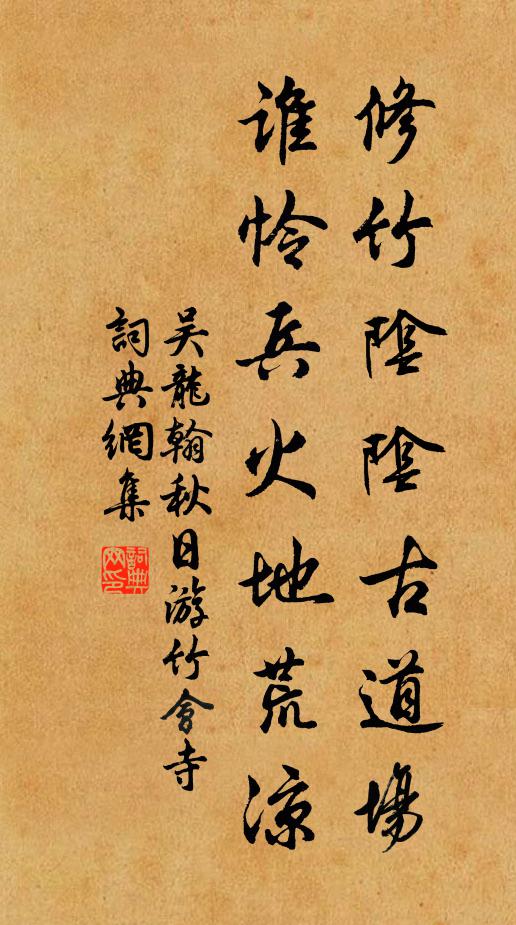 修竹陰陰古道場
誰怜兵火地荒涼
吴龍翰秋日游竹會寺
詞典網集
詞典网印